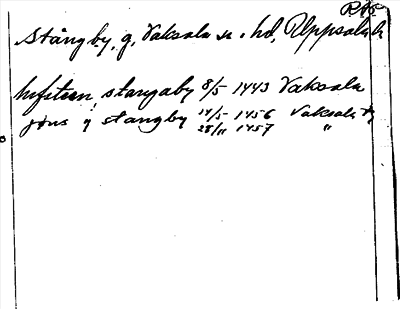 RAp.
Stångby, g, Vaksala sn o. hd, Uppsala l.
i stangaby 8/5 1443 Vaksala
jöns j stangby 14/5 1456 Vaksala
28/11 1457 "